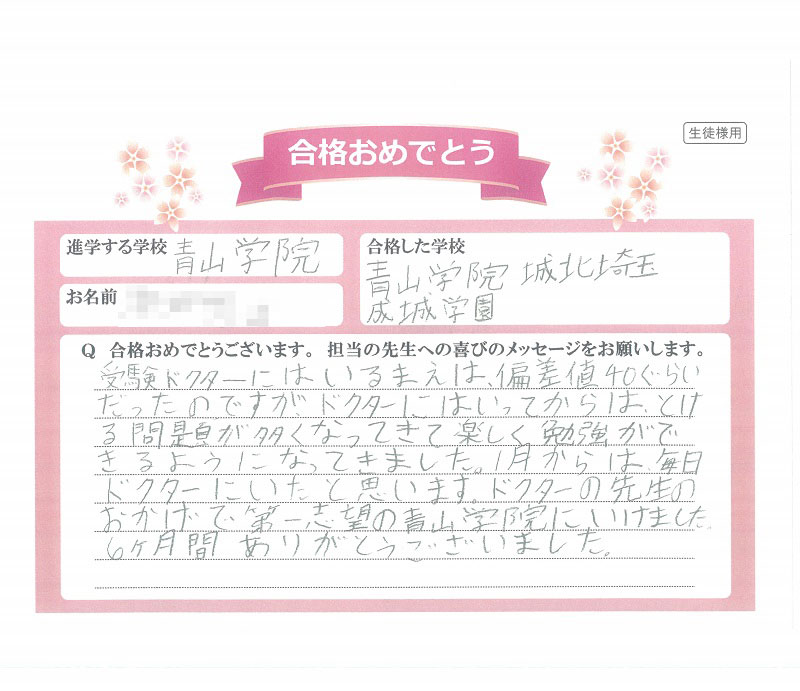 生徒様用
合格おめでとう
進学する学校 青山学院
お名前
合格した学校
青山学院 城北埼玉
成城学園
Q 合格おめでとうございます。担当の先生への喜びのメッセージをお願いします。
受験ドクターにはいるまえは、偏差値40ぐらい
だったのですが、ドクターにはいってからは、とけ
る問題が多くなってきて楽しく勉強がで
きるようになってきました。1月からは、毎日
ドクターにいたと思います。ドクターの先生の
おかげで第一志望の青山学院にいけました。
6ヶ月間 ありがとうございました。